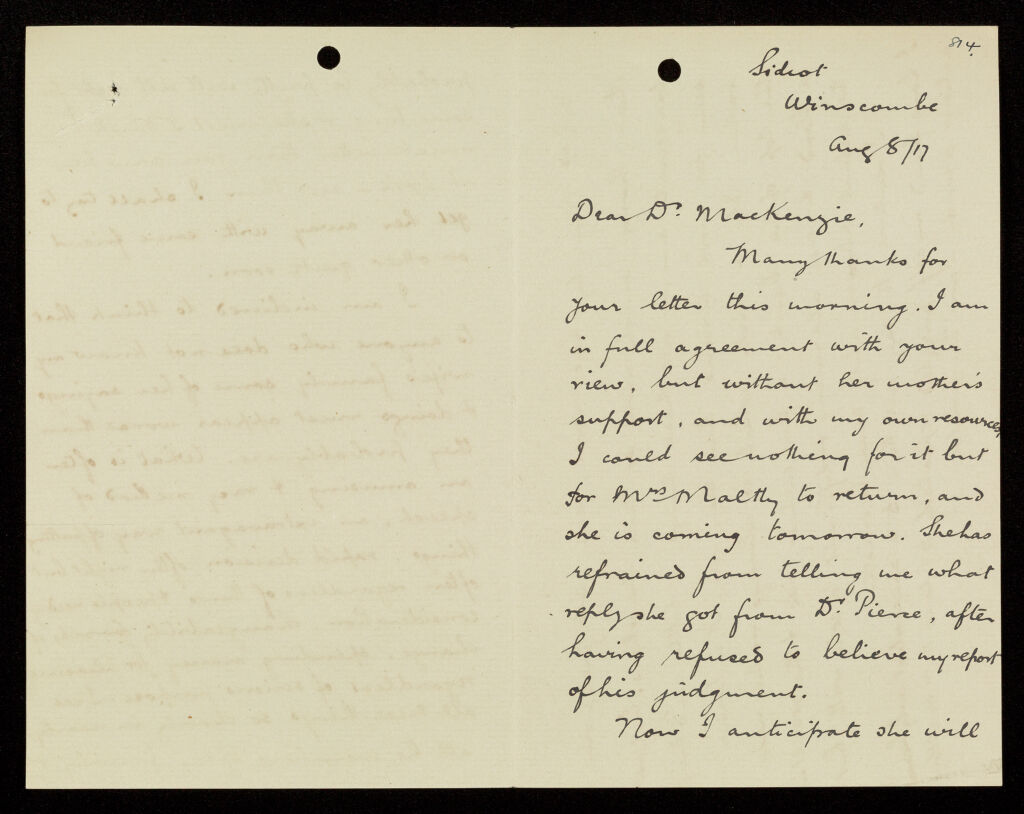 814.
Sidcot
Winscombe
Aug 8/17
Dear Dr. MacKenzie,
Many thanks for
your letter this morning. I am
in full agreement with your
view, but without her mother's
support, and with my own resources,
I could see nothing for it but
for Mrs Maltby to return, and
she is coming tomorrow. She has
refrained from telling me what
reply she got from Dr. Pierce, after
having refused to believe my report
of his judgment.
Now I anticipate she will